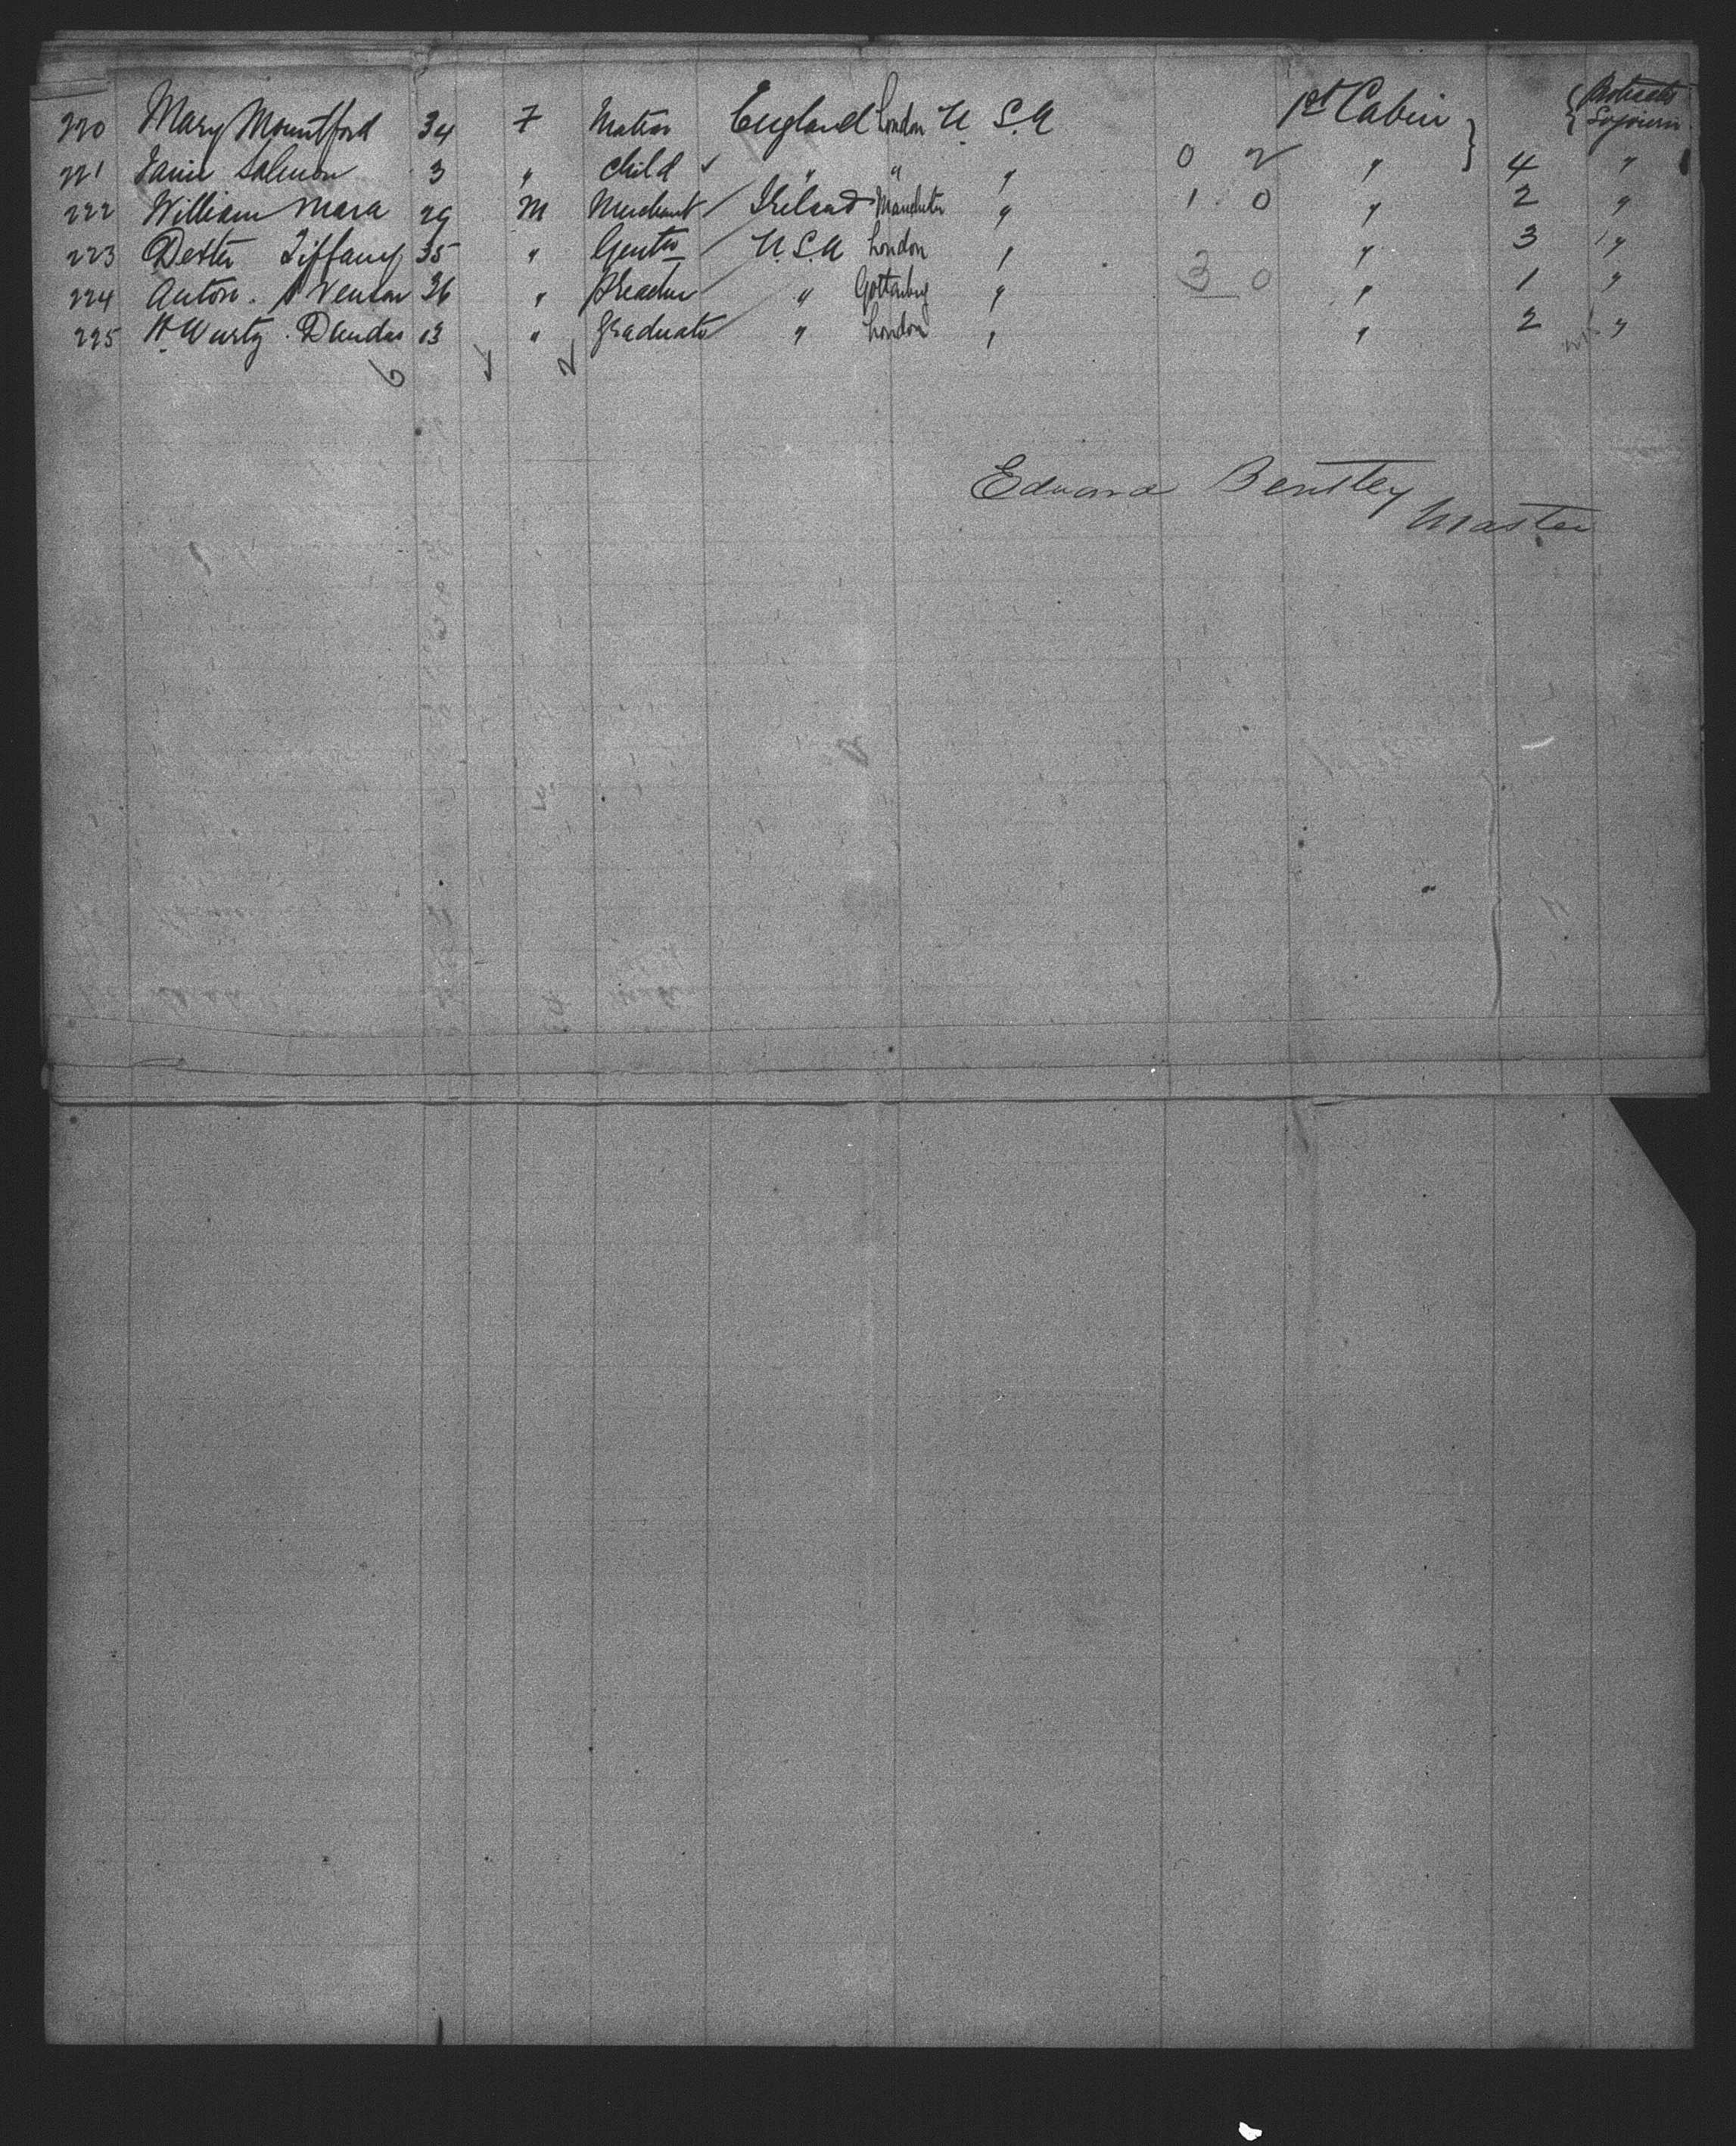 220 Mary Mountford 34 F Matron England London U.S.A 1st Cabin } { Protracted Sojourn
221 Janie Salmon 3 " Child " " " 0 2 " 4 "
222 William Mara 29 M Merchant Ireland Manchester " 1 0 " 2 "
223 Dexter Tiffany 35 " Gentn U.S.A London " " 3 "
224 Anton Svenson 36 " Preacher " Gottenbug " 3 0 " 1 "
225 H. Wurtz Dundas 13 " Graduate " London " " 2 "
6 2
Edward Bentley
Master